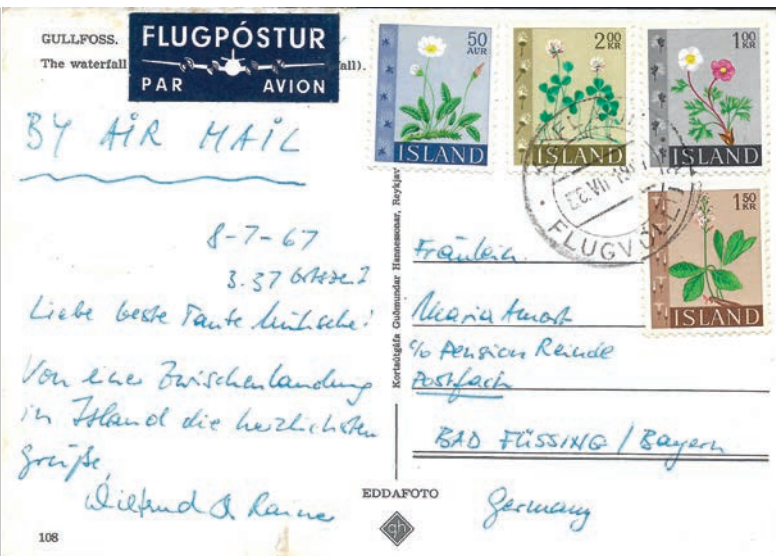 GULLFOSS.
The waterfall
all).
FLUGPÓSTUR
PAR AVION
50 AUR
ISLAND
2 00 KR
ISLAND
1 00 KR
ISLAND
1 50 KR
ISLAND
FLUGVÖLL
BY AIR MAIL
8-7-67
3.37 Ortszeit
Liebe beste Tante
Von einer Zwischenlandung
in Island die herzlichsten
Grüße,
Wilfrud & Rainer
Kortaútgáfa Guðmundar Hannessonar, Reykjav
Fräulein
Maria
c/o Pension Reinde
Postfach
BAD FÜSSING / Bayern
Germany
EDDAFOTO
gh
108